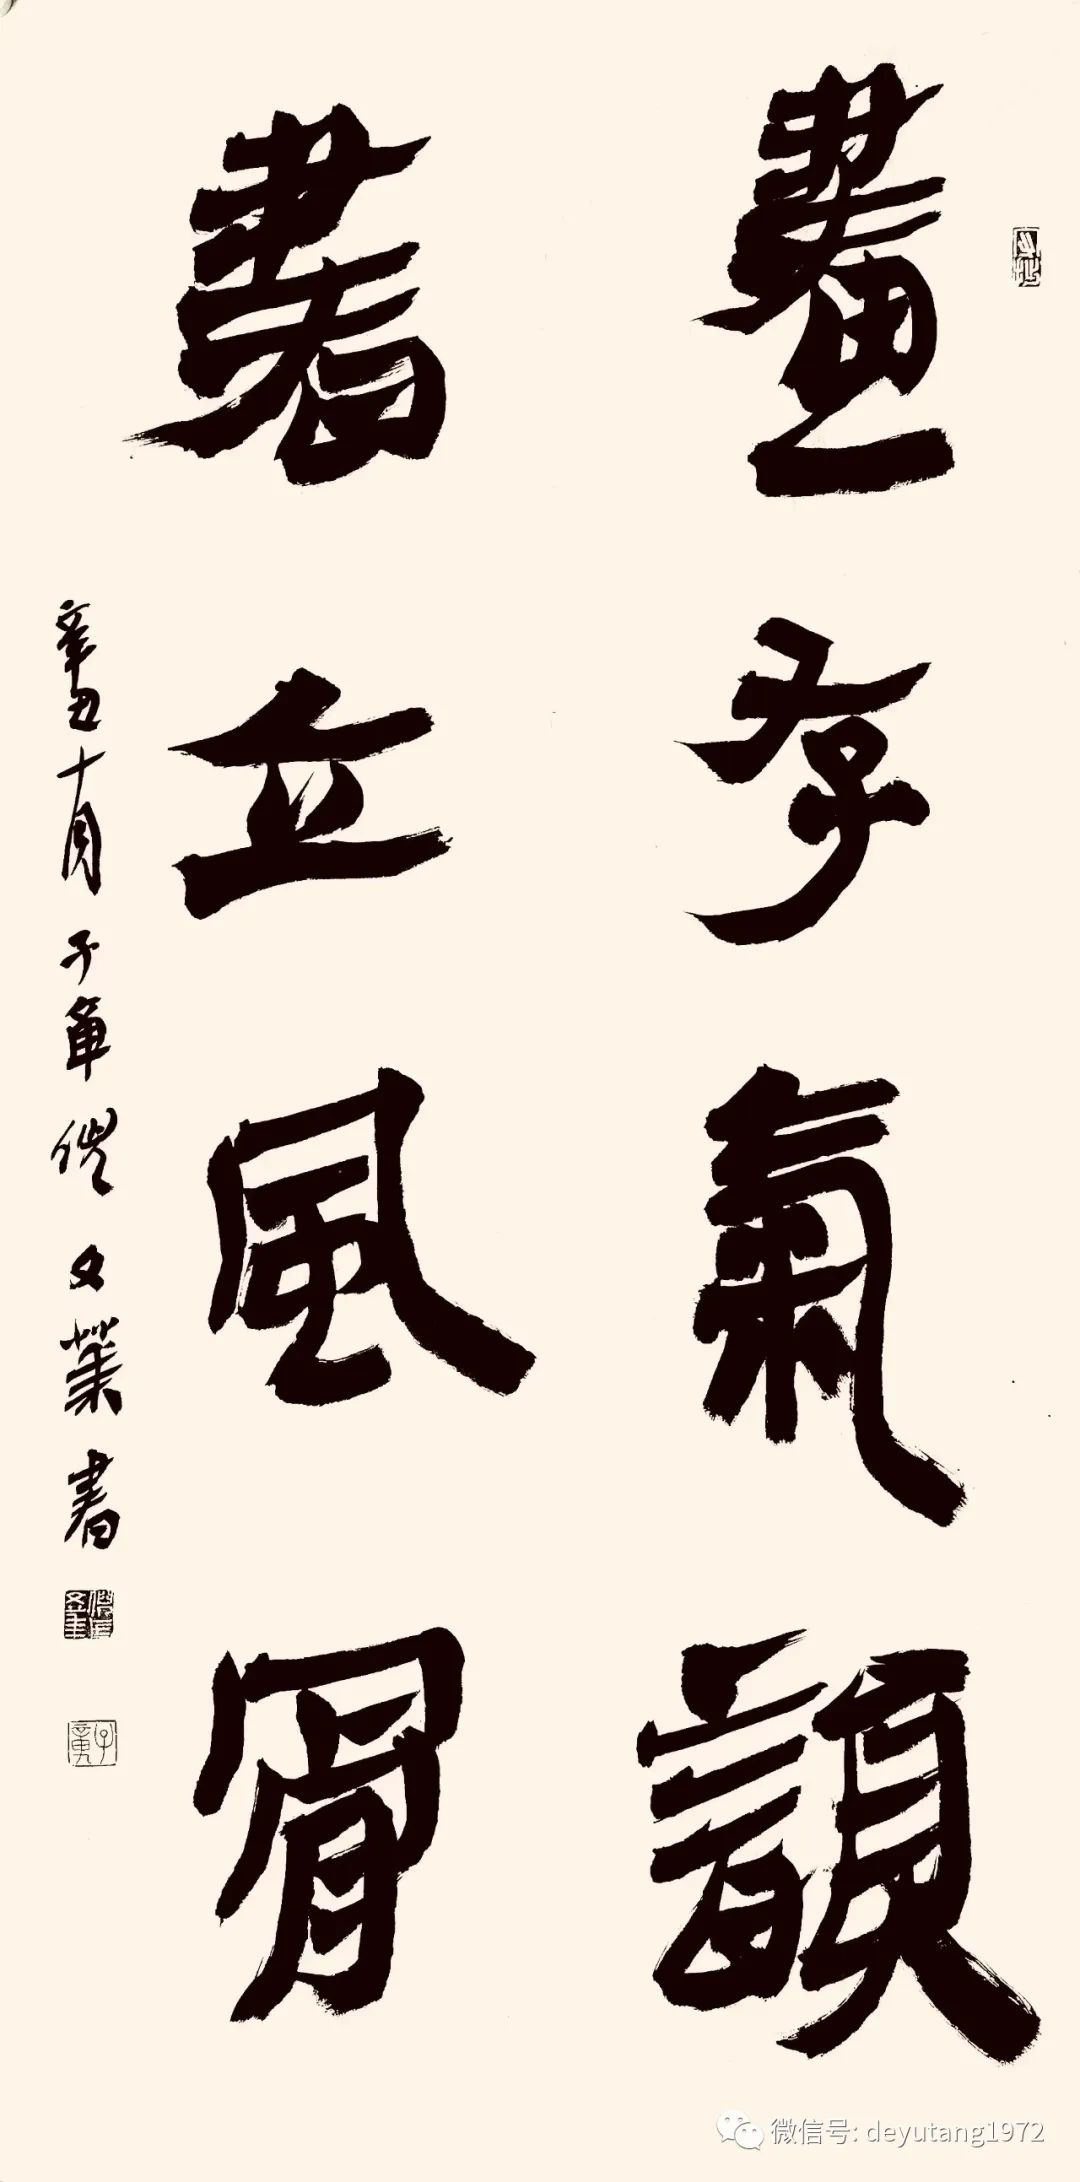 畫存氣韻
書立風骨
辛丑十月子章文業書
微信号: deyutang1972